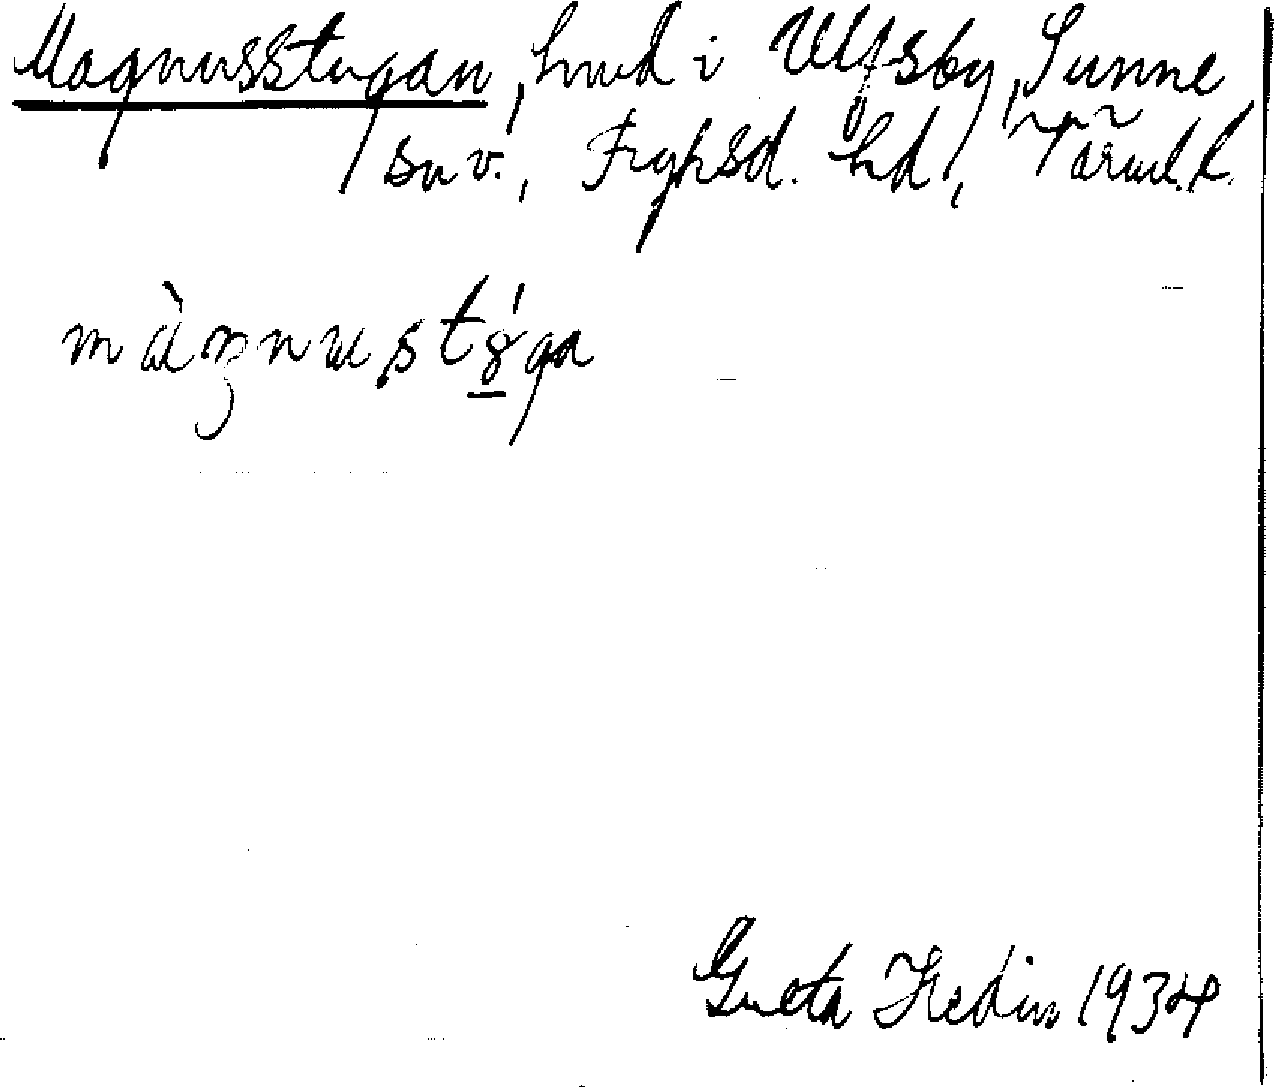 Magnusstugan, hmd i Ulfsby, Sunne
sn v., Fryksd. hd, Värml. l.
màŋnustóga
Greta Hedin 1934